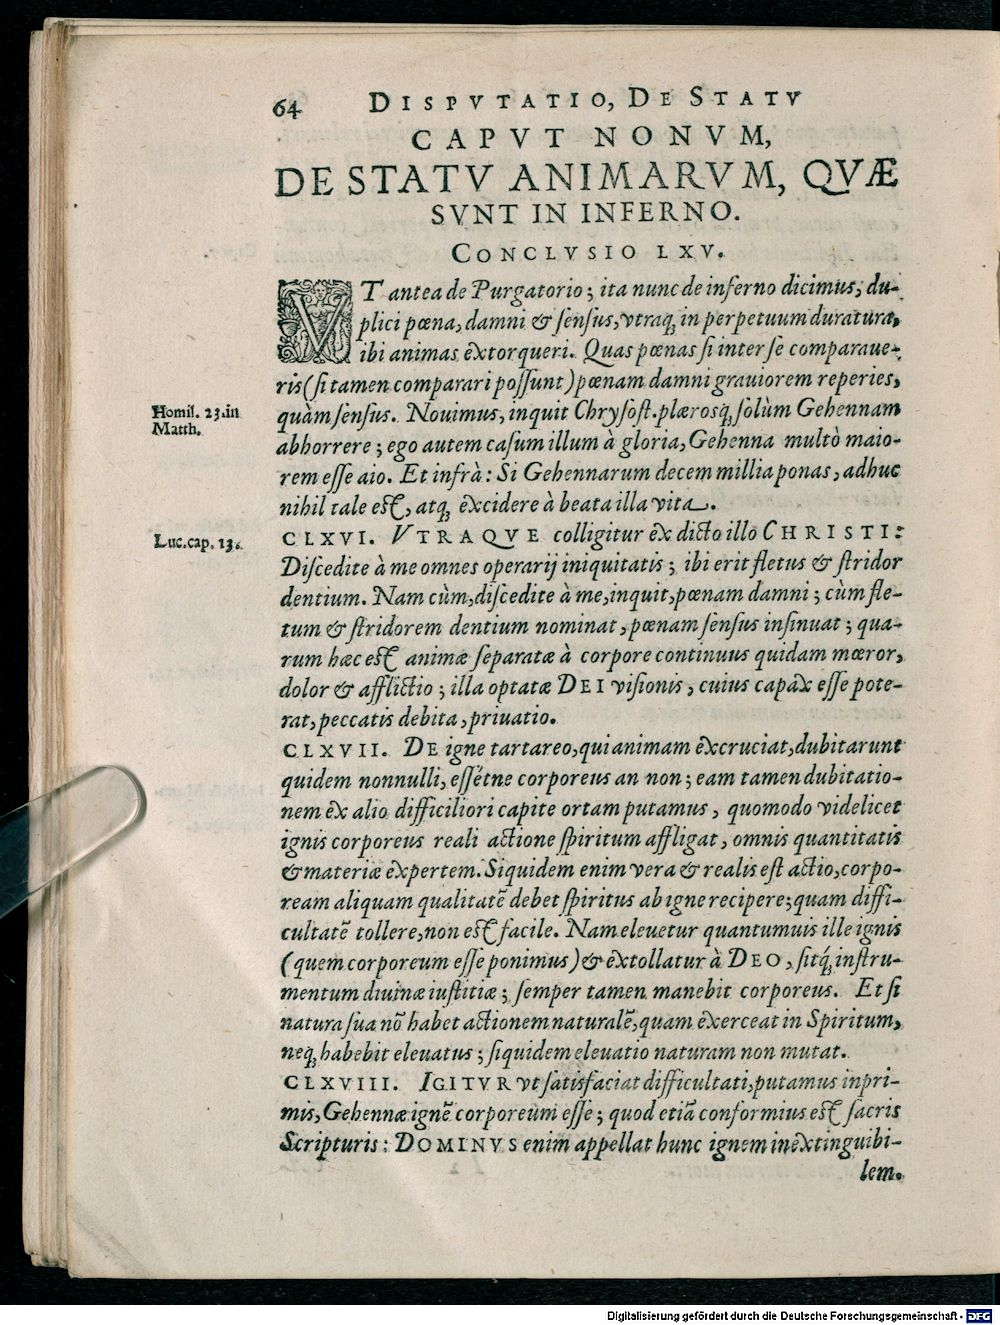 64 DISPVTATIO, DE STATV
CAPVT NONVM,
DE STATV ANIMARVM, QVÆ
SVNT IN INFERNO.
CONCLVSIO LXV.
VT antea de Purgatorio; ita nunc de inferno dicimus, du-
plici pœna, damni & sensus, vtraq; in perpetuum duratura,
ibi animas extorqueri. Quas pœnas si inter se comparaue-
ris (si tamen comparari possunt) pœnam damni grauiorem reperies,
Homil. 23. in
Matth.
quàm sensus. Nouimus, inquit Chrysost. plærosq; solùm Gehennam
abhorrere; ego autem casum illum à gloria, Gehenna multò maio-
rem esse aio. Et infrà: Si Gehennarum decem millia ponas, adhuc
nihil tale est, atq; excidere à beata illa vita.
Luc. cap. 13.
CLXVI. VTRAQVE colligitur ex dicto illo CHRISTI:
Discedite à me omnes operarij iniquitatis; ibi erit fletus & stridor
dentium. Nam cùm, discedite à me, inquit, pœnam damni; cùm fle-
tum & stridorem dentium nominat, pœnam sensus insinuat; qua-
rum hæc est animæ separatæ à corpore continuus quidam mœror,
dolor & afflictio; illa optatæ DEI visionis, cuius capax esse pote-
rat, peccatis debita, priuatio.
CLXVII. DE igne tartareo, qui animam excruciat, dubitarunt
quidem nonnulli, essétne corporeus an non; eam tamen dubitatio-
nem ex alio difficiliori capite ortam putamus, quomodo videlicet
ignis corporeus reali actione spiritum affligat, omnis quantitatis
& materiæ expertem. Siquidem enim vera & realis est actio, corpo-
ream aliquam qualitatē debet spiritus ab igne recipere; quam diffi-
cultatē tollere, non est facile. Nam eleuetur quantumuis ille ignis
(quem corporeum esse ponimus) & extollatur à DEO, sitq́; instru-
mentum diuinæ iustitiæ; semper tamen manebit corporeus. Et si
natura sua nō habet actionem naturalē, quam exerceat in Spiritum,
neq; habebit eleuatus; siquidem eleuatio naturam non mutat.
CLXVIII. IGITVR vt satisfaciat difficultati, putamus inpri-
mis, Gehennæ ignē corporeum esse; quod etiā conformius est sacris
Scripturis: DOMINVS enim appellat hunc ignem inextinguibi-
lem.
Digitalisierung gefördert durch die Deutsche Forschungsgemeinschaft - DFG